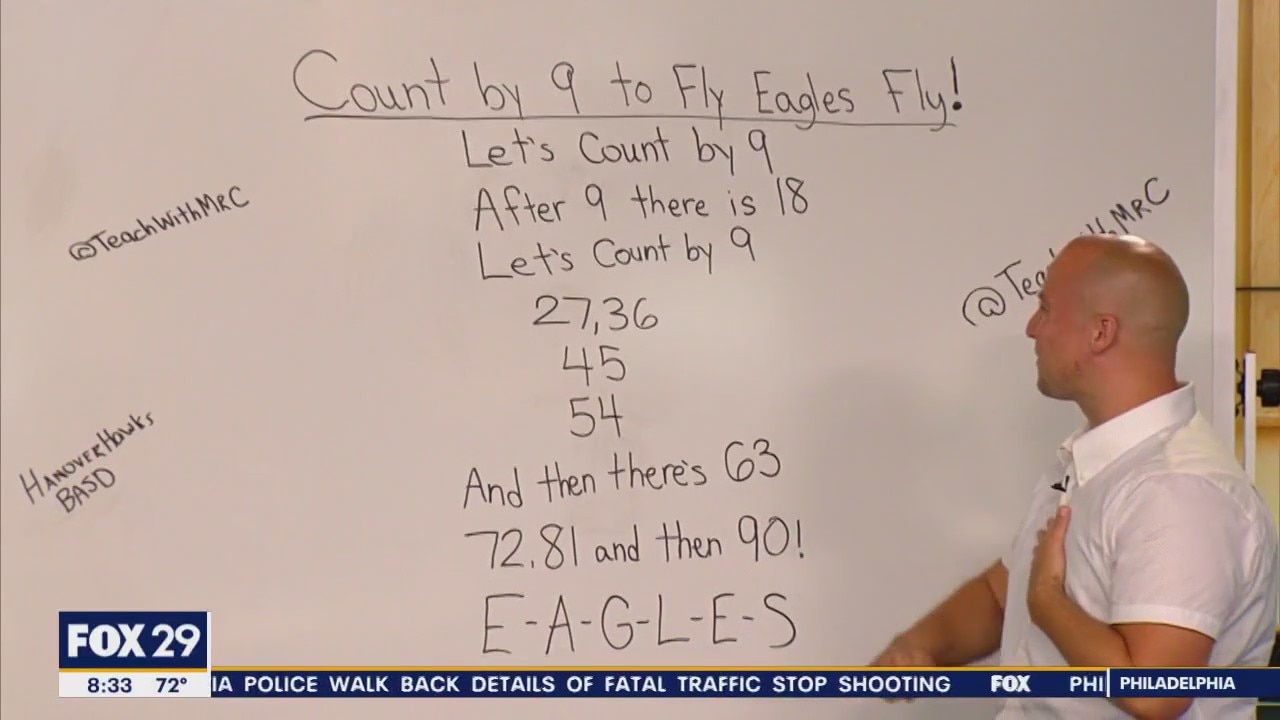 Count by 9 to Fly Eagles Fly!
Let's Count by 9
After 9 there is 18
Let's Count by 9
27,36
45
54
And then there's 63
72,81 and then 90!
E-A-G-L-E-S
@TeachWithMRC
HANOVERHAWKS
BASD
MRC
FOX 29
8:33 72°
IA POLICE WALK BACK DETAILS OF FATAL TRAFFIC STOP SHOOTING FOX PHI PHILADELPHIA